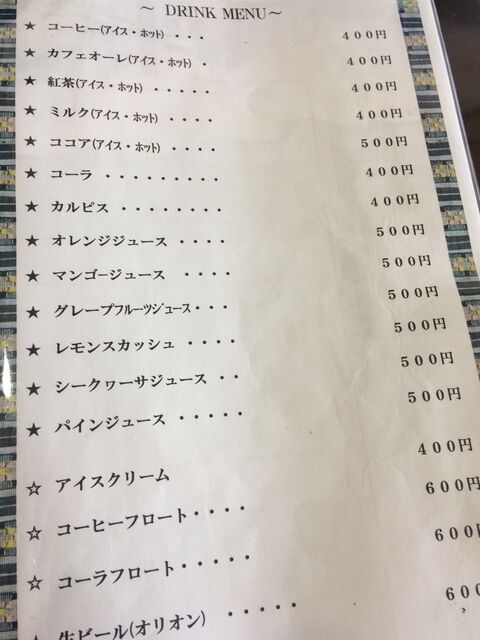 ～ DRINK MENU～
★ コーヒー(アイス・ホット) ・・・ 400円
★ カフェオーレ(アイス・ホット) ・ 400円
★ 紅茶(アイス・ホット) ・・・・・ 400円
★ ミルク(アイス・ホット) ・・・・ 400円
★ ココア(アイス・ホット) ・・・・ 500円
★ コーラ ・・・・・・・・・ 400円
★ カルピス ・・・・・・・・ 400円
★ オレンジジュース ・・・・ 500円
★ マンゴージュース ・・・・ 500円
★ グレープフルーツジュース・・・ 500円
★ レモンスカッシュ ・・・・ 500円
★ シークヮーサジュース ・・ 500円
★ パインジュース ・・・・・ 500円
☆ アイスクリーム 400円
☆ コーヒーフロート・・・・ 600円
☆ コーラフロート・・・・・ 600円
生ビール(オリオン) ・・・・・ 600